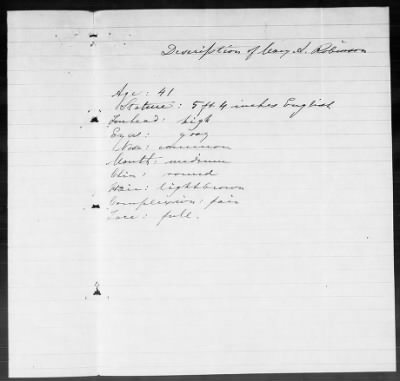 Description of Mary A. Robinson
Age: 41
Stature: 5 ft 4 inches English
Forehead: high
Eyes: gray
Nose: common
Mouth: medium
Chin: round
Hair: light brown
Complexion: fair
Face: full.